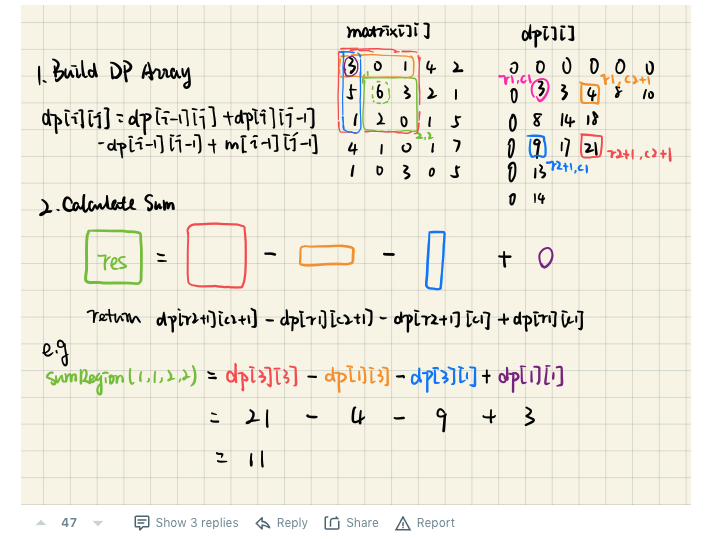 matrix[i][j]
dp[i][j]
1. Build DP Array
dp[i][j] = dp[i-1][j] + dp[i][j-1]
- dp[i-1][j-1] + m[i-1][j-1]
3 0 1 4 2
5 6 3 2 1
1 2 0 1 5
2,2
4 1 0 1 7
1 0 3 0 5
0 0 0 0 0 0
r1,c1
r1,c2+1
0 3 3 4 8 10
0 8 14 18
0 9 17 21
r2+1,c2+1
r2+1,c1
0 13
0 14
2. Calculate Sum
res = - - +
return dp[r2+1][c2+1] - dp[r1][c2+1] - dp[r2+1][c1] + dp[r1][c1]
e.g
sumRegion(1,1,2,2) = dp[3][3] - dp[1][3] - dp[3][1] + dp[1][1]
= 21 - 4 - 9 + 3
= 11
47 Show 3 replies Reply Share Report